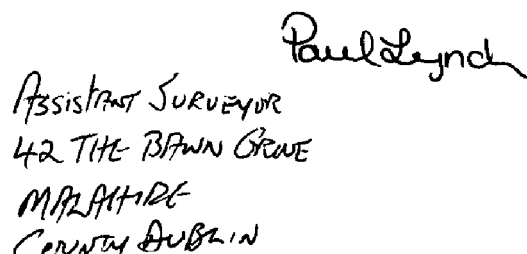 Paul Lynch
Assistant Surveyor
42 The Bawn Grove
Malahide
County Dublin